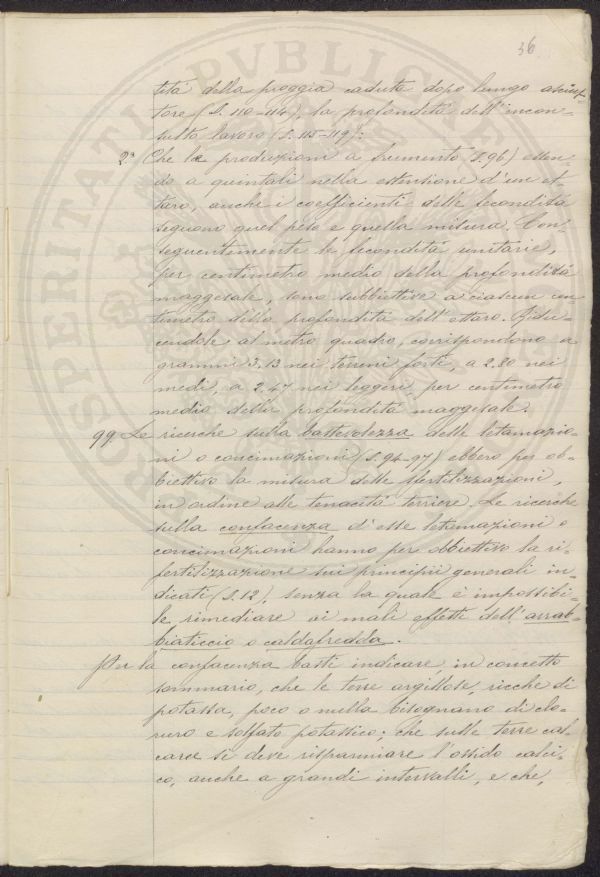 36
tità della pioggia caduta dopo lungo asciut-
tore (S. 110-114), la profondità dell'incon-
sulto lavoro (S. 115-119):
2ª Che le produzioni a frumento (S. 96) essen-
do a quintali nella estensione d'un et-
taro, anche i coefficienti delle fecondità
seguono quel peso e quella misura. Con-
seguentemente le fecondità unitarie,
per centimetro medio della profondità
maggesale, sono subbiettive a ciascun cen
timetro della profondità dell'ettaro. Ridu-
cendole al metro quadro, corrispondono a
grammi 3,13 nei terreni forti, a 2.80 nei
medi, a 2.47 nei leggeri, per centimetro
medio della profondità maggesale.
99. Le ricerche sulla bastevolezza delle letamazio-
ni o concimazioni (S. 94-97) ebbero per ob-
biettivo la misura delle fertilizzazioni,
in ordine alle tenacità terriere. Le ricerche
sulla confacenza d'esse letamazioni o
concimazioni hanno per obbiettivo la ri-
fertilizzazione sui principii generali in-
dicati (S. 12), senza la quale è impossibi-
le rimediare ai mali effetti dell'arrab-
biaticcio o caldafredda.
Per la confacenza basti indicare, in concetto
sommario, che le terre argillose, ricche di
potassa, poco o nulla bisognano di clo-
ruro e solfato potassico; che sulle terre cal-
caree si deve risparmiare l'ossido calci-
co, anche a grandi intervalli, e che,